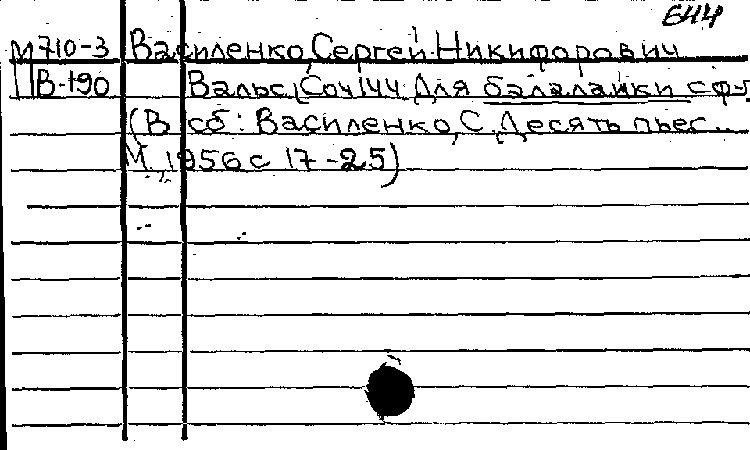 6414
М710-3 Василенко, Сергей Никифорович
В-190 Вальс (Соч 44. Для балалайки с ф-п
(В сб: Василенко, С. Десять пьес...
М., 1956 с 17-25)